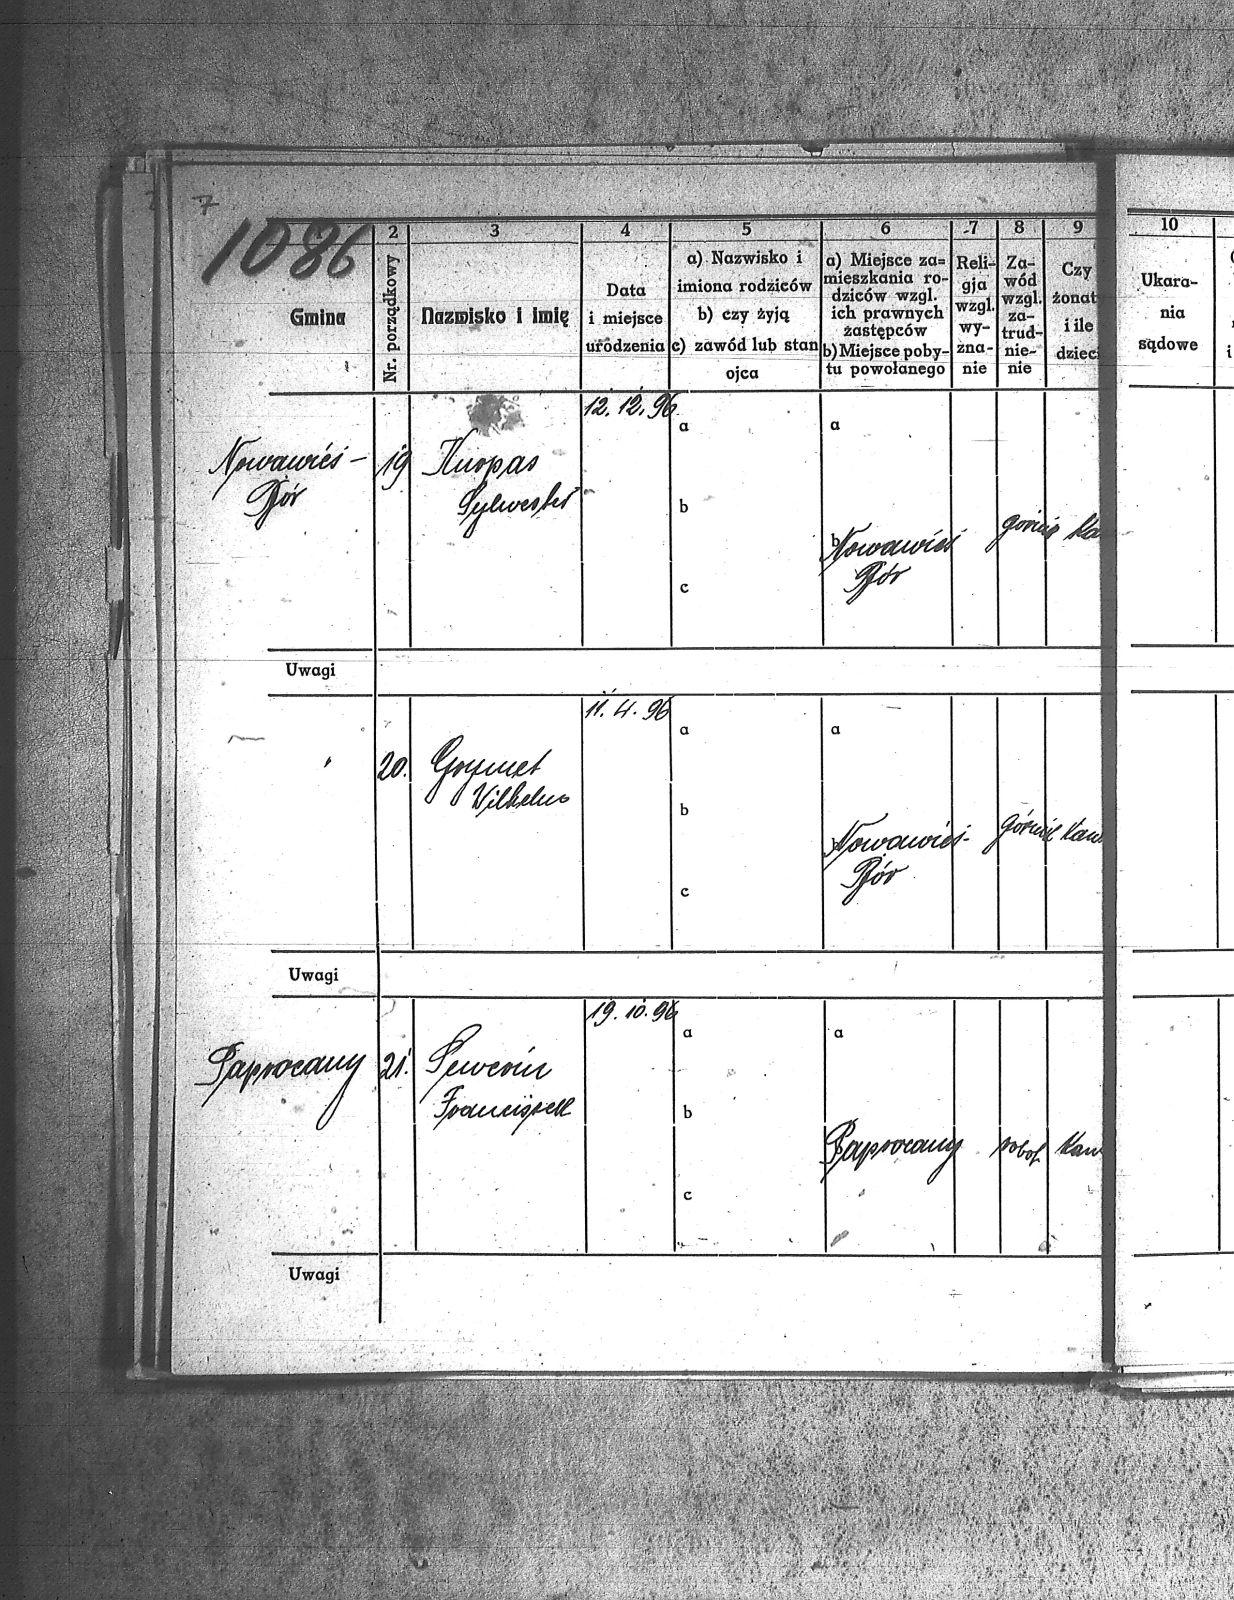 7
1086
2 3 4 5 6 7 8 9 10
Gmina
Nr. porządkowy
Nazwisko i imię
Data
i miejsce
urodzenia
a) Nazwisko i
imiona rodziców
b) czy żyją
c) zawód lub stan
ojca
a) Miejsce za=
mieszkania ro-
dziców wzgl.
ich prawnych
zastępców
b) Miejsce poby-
tu powołanego
Reli-
gja
wzgl.
wy-
zna-
nie
Za-
wód
wzgl.
za-
trud-
nie-
nie
Czy
żonat
i ile
dzieci
Ukara-
nia
sądowe
Nowawieś -
19
Sylwester
12. 12. 96
a
b
c
a
b
Nowawieś
górnik
Uwagi
20.
Wilhelm
11. 4. 96
a
b
c
a
Nowawieś-
górnik
Uwagi
Paprocany
21.
Sewerin
Franciszek
19. 10. 96
a
b
c
a
Paprocany
robot
Uwagi